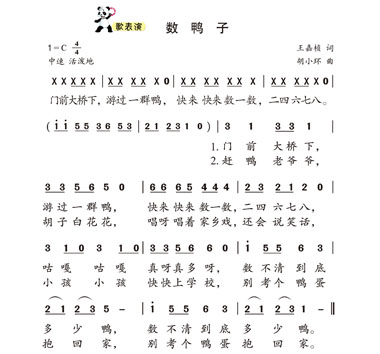 歌表演
数 鸭 子
1=C 4/4
中速 活泼地
王嘉桢 词
胡小环 曲
X X X X X | X X X X X 0 | X X X X X X X | X X X X X 0 |
门前大桥下，游过一群鸭， 快来 快来 数一数，二四六七八。
( i i 5 5 3 5 3 | 2 1 2 3 1 0 ) | 3 1 3 3 1 |
1.门 前 大 桥 下，
2.赶 鸭 老 爷 爷，
3 3 5 6 5 0 | 6 6 6 5 4 4 4 | 2 3 2 1 2 0 |
游 过 一 群 鸭， 快来 快来 数一数，二 四 六 七 八。
胡 子 白 花 花， 唱呀 唱着 家乡戏，还 会 说 笑 话，
3 1 0 3 1 0 | 3 3 5 6 6 0 | i 5 5 6 3 |
咕 嘎 咕 嘎 真呀真多 呀， 数 不 清 到 底
小 孩 小 孩 快快上学 校， 别 考 个 鸭 蛋
2 1 2 3 5 - | i 5 5 6 3 | 2 1 2 3 1 - ‖
多 少 鸭， 数 不 清 到 底 多 少 鸭。
抱 回 家， 别 考 个 鸭 蛋 抱 回 家。